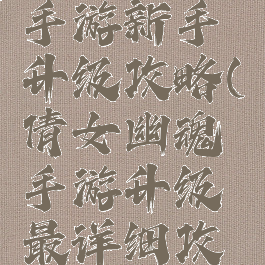 手游新手
升级攻略(
倩女幽魂
手游升级
最详细攻